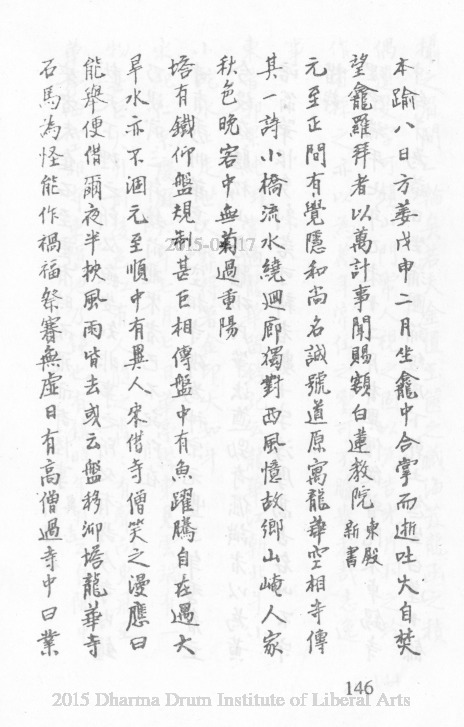 本踰八日方萎戊申二月坐龕中合掌而逝吐火自焚
望龕羅拜者以萬計事聞賜額白蓮教院東殿新書
元至正間有覺隱和尚名誠號道原寓龍華空相寺傳
其一詩小橋流水繞迴廊獨對西風憶故鄉山崦人家
秋色晚客中無菊過重陽
塔有鐵仰盤規制甚巨相傳盤中有魚躍騰自在過大
旱水亦不涸元至順中有異人來借寺僧笑之漫應曰
能舉便借爾夜半挾風雨皆去或云盤移泖塔龍華寺
石馬為怪能作禍福祭賽無虛日有高僧過寺中曰業
146
2015-0 17
2015 Dharma Drum Institute of Liberal Arts